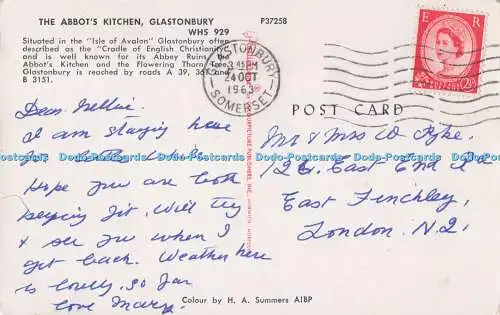 THE ABBOT'S KITCHEN, GLASTONBURY P37258
WHS 929
Situated in the "Isle of Avalon" Glastonbury often
described as the "Cradle of English Christianity"
and is well known for its Abbey Ruins, the
Abbot's Kitchen and the Flowering Thorn Tree.
Glastonbury is reached by roads A 39, 361 and
B 3151.
GLASTONBURY
2.45PM
24 OCT
1963
SOMERSET
E R
2½D
POST CARD
Dear Nellie.
I am staying here
for
Hope you are both
keeping fit. Will try
& see you when I
get back. Weather here
is lovely, so far
love Mary.
Mr & Mrs W Pyke.
126. East End Rd
East Finchley,
London. N.2.
Colour by H. A. Summers AIBP
Dodo-Postcards Dodo-Postcards Dodo-Postcards Dodo-Postcards